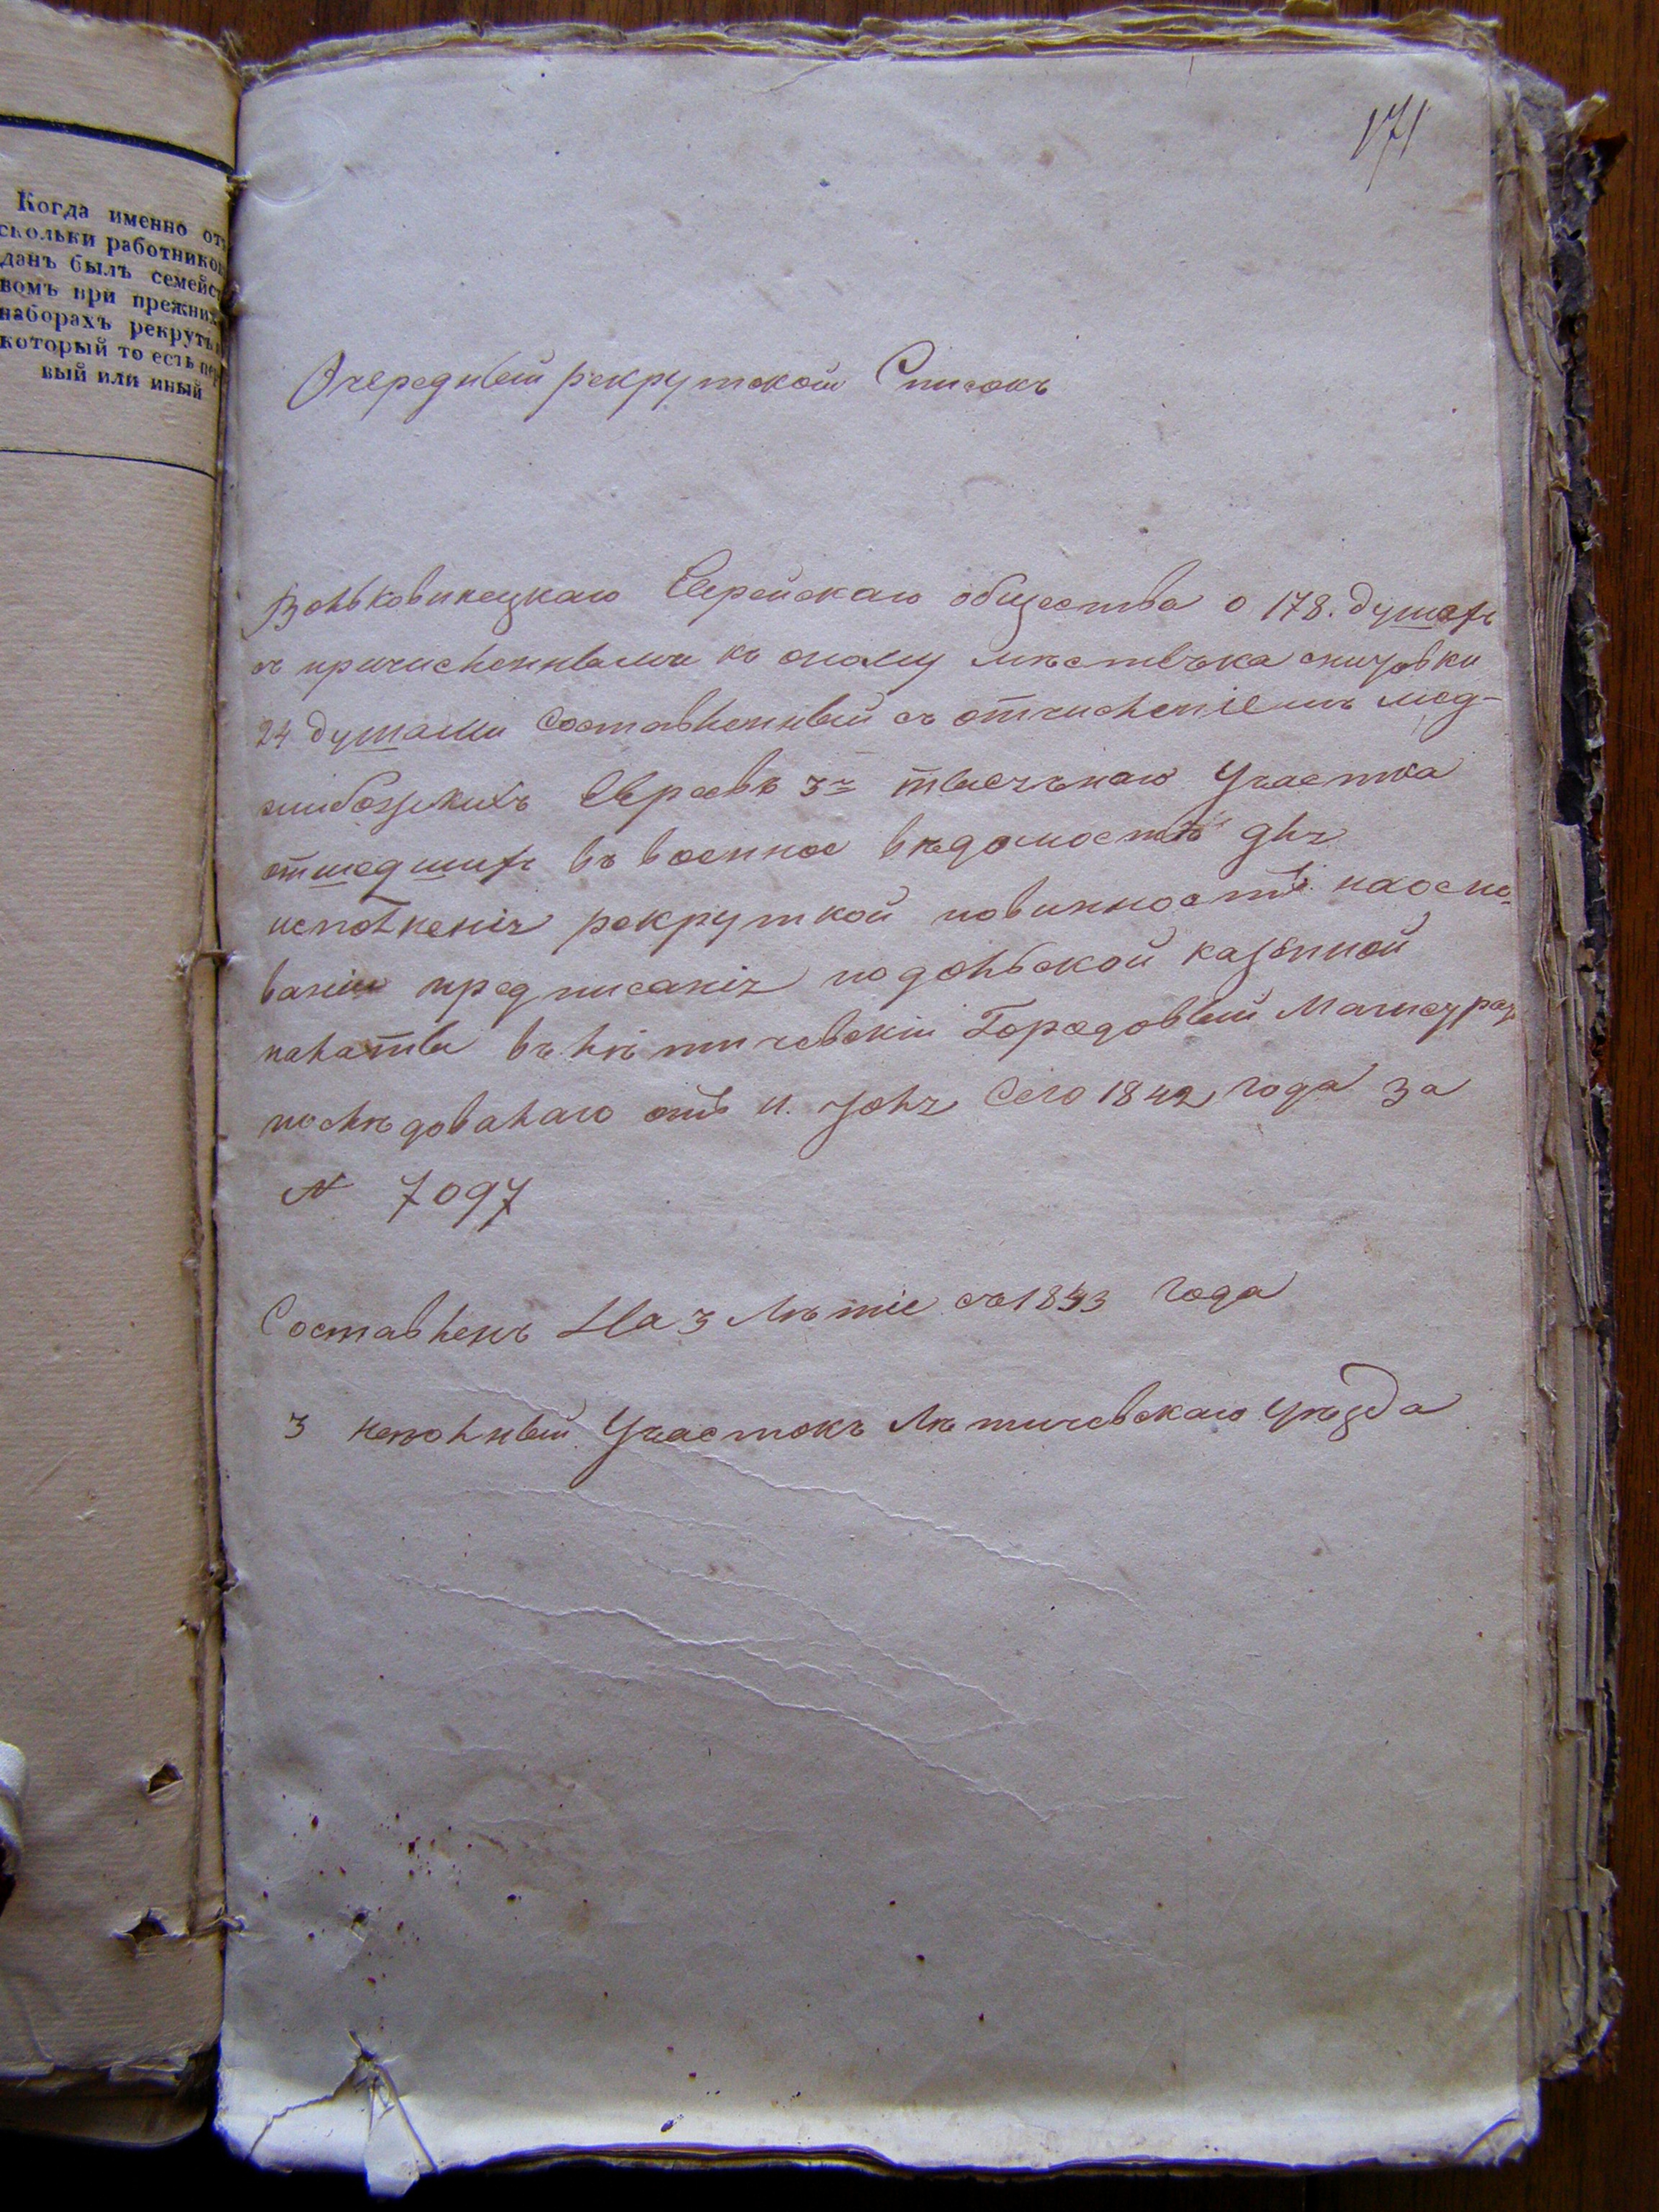 171
Когда именно отъ
скольки работнико
данъ былъ семейс
вомъ при прежних
наборахъ рекрутъ
который то есть пер
вый или иный
Очередный рекрутской Списокъ
Вольковинецкаго Еврейскаго общества о 178. душахъ
съ причисленными къ оному мѣстечка снитовки
24 душами Составленный съ отчисленіемъ мед-
жибожскихъ Евреевъ 3го тысячнаго Участка
отшедшихъ въ военное вѣдомость для
исполненія рекруткой повинности на осно
ваніи предписанія подольской казенной
палаты въ лѣтичевскій Городовый Магистрат
послѣдовалаго отъ 11. Іюля Сего 1842 года за
№ 7097
Составленъ На 3 лѣтіе съ 1843 года
3 неполный Участокъ Лѣтичевскаго уѣзда